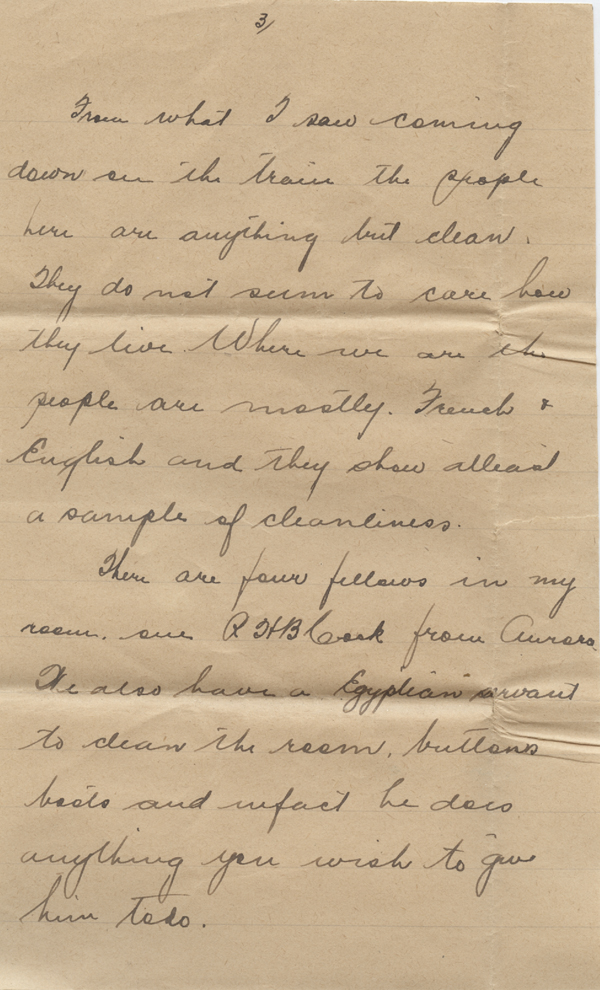 3/
From what I saw coming
down on the train the people
here are anything but clean.
They do not seem to care how
they live. Where we are the
people are mostly. French &
English and they show atleast
a sample of cleanliness.
There are four fellows in my
room. one R H B Cook from Aurora
We also have a Egyptian servant
to clean the room, buttons
boots and infact he does
anything you wish to give
him todo.